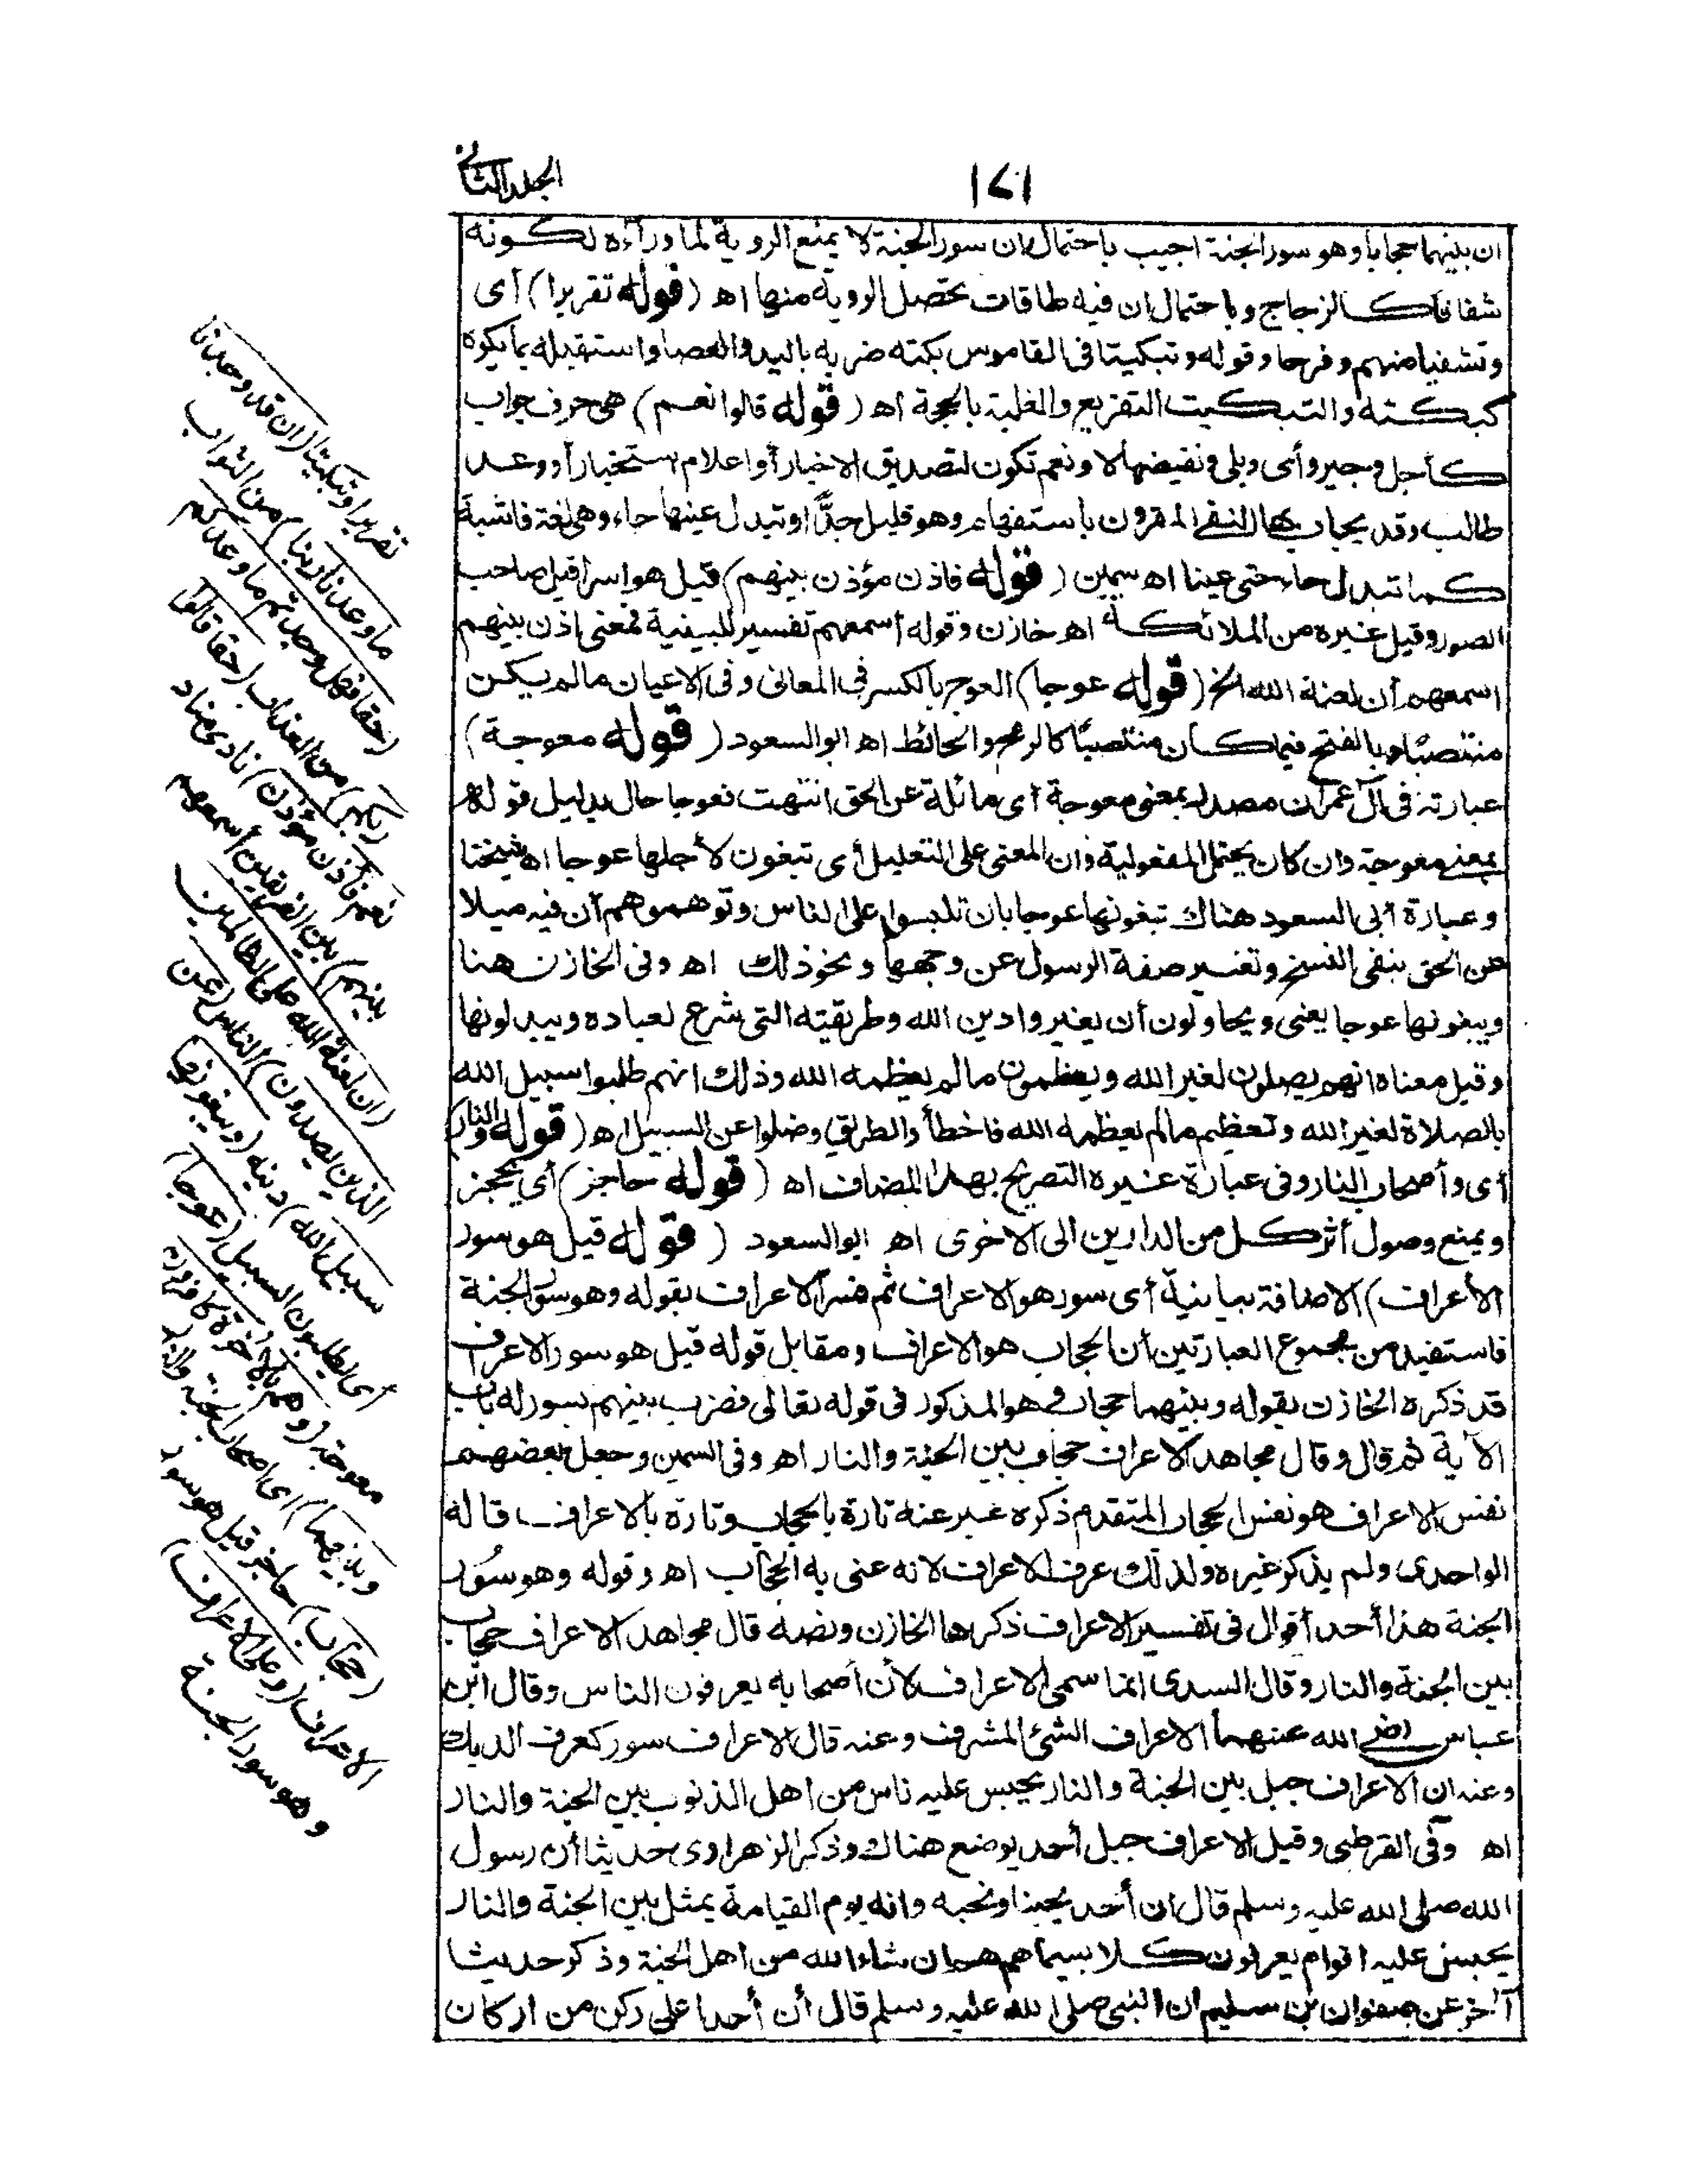 الجلد الثاني
١٧١
ان بينهما حجابا وهو سور الجنة اجيب باحتمال ان سور الجنة لا يمنع الروية لما ورآءه لكونه
شفافا كالزجاج وباحتمال ان فيه طاقات تحصل الروية منها اه (قوله تقريرا) أى
وتشفيا منهم وفرحا وقوله وتبكيتا فى القاموس بكته ضربه بالسيف والعصا واستقبله بما يكره
كبكته والتبكيت التقريع والغلبة بالحجة اه (قوله قالوا نعم) هى حرف جواب
كأجل وجير وأى وبلى ونقيضها لا ونعم تكون لتصديق الاخبار أو اعلام استخبار أو وعد
طالب وقد يجاب بها النفى المقرون باستفهام وهو قليل جدًّا وتبدل عينها حاء وهى لغة فاشية
كما تبدل حاء حتى عينا اه سمين (قوله فاذن مؤذن بينهم) قيل هو اسرافيل صاحب
الصور وقيل غيره من الملائكة اه خازن وقوله أسمعهم تفسير للبينية فمعنى اذن بينهم
اسمعهم أن لعنة الله الخ (قوله عوجا) العوج بالكسر فى المعانى وفى الاعيان ما لم يكن
منتصبًا وبالفتح فيما كان منتصبًا كالرمح والحائط اه ابو السعود (قوله معوجة)
عبارته فى آل عمران مصدر بمعنى معوجة أى مائلة عن الحق انتهت فعوجا حال بدليل قوله
بمعنى معوجة وان كان يحتمل المفعولية وان المعنى على التعليل أى تبغون لأجلها عوجا اه شيخنا
وعبارة أبى السعود هناك تبغونها عوجا بان تلبسوا على الناس وتوهموهم أن فيه ميلا
عن الحق بنفى النسخ وتغيير صفة الرسول عن وجهها ونحو ذلك اه وفى الخازن هنا
ويبغونها عوجا يعنى ويحاولون أن يغيروا دين الله وطريقته التى شرع لعباده ويبدلونها
وقيل معناه انهم يصلون لغير الله ويعظمون ما لم يعظمه الله وذلك انهم طلبوا سبيل الله
بالصلاة لغير الله وتعظيم ما لم يعظمه الله فاخطأوا الطريق وضلوا عن السبيل اه (قوله والنار)
أى وأصحاب النار وفى عبارة غيره التصريح بهذا المضاف اه (قوله حاجز) أى يحجز
ويمنع وصول أثر كل من الدارين الى الاخرى اه ابو السعود (قوله قيل هو سور
الأعراف) الاضافة بيانية أى سور هو الاعراف ثم فسر الاعراف بقوله وهو سور الجنة
فاستفيد من مجموع العبارتين أن الحجاب هو الاعراف ومقابل قوله قيل هو سور الاعراف
قد ذكره الخازن بقوله وبينهما حجاب هو المذكور فى قوله تعالى فضرب بينهم بسور له باب
الآية ثم قال وقال مجاهد الاعراف حجاب بين الجنة والنار اه وفى السمين وجعل بعضهم
نفس الاعراف هو نفس الحجاب المتقدم ذكره عبر عنه تارة بالحجاب وتارة بالاعراف قاله
الواحدى ولم يذكر غيره ولذلك عرف الاعراف لانه عنى به الحجاب اه وقوله وهو سُور
الجنة هذا أحد أقوال فى تفسير الاعراف ذكرها الخازن ونصه قال مجاهد الاعراف حجاب
بين الجنة والنار وقال السدى انما سمى الاعراف لأن أصحابه يعرفون الناس وقال ابن
عباس رضى الله عنهما الاعراف الشئ المشرف وعنه قال الاعراف سور كعرف الديك
وعنه ان الاعراف جبل بين الجنة والنار يحبس عليه ناس من اهل الذنوب بين الجنة والنار
اه وفى القرطبى وقيل الاعراف جبل أحد يوضع هناك وذكر الزهراوى حديثا أن رسول
الله صلى الله عليه وسلم قال ان أحد يحبنا ونحبه وانه يوم القيامة يمثل بين الجنة والنار
يحبس عليه اقوام يعرفون كلا بسيماهم هم ان شاء الله من اهل الجنة وذكر حديثا
آخر عن صفوان بن سليم ان النبى صلى الله عليه وسلم قال أن أحدا على ركن من اركان
تقريرا وتبكيتا (ان قد وجدنا
ما وعدنا ربنا) من الثواب
(حقا فهل وجدتم ما وعدكم
ربكم) من العذاب (حقا قالوا
نعم فأذن مؤذن) نادى مناد
بينهم) بين الفريقين أسمعهم
(ان لعنة الله على الظالمين
الذين يصدون) الناس (عن
سبيل الله) دينه (ويبغونها)
أى يطلبون السبيل (عوجا)
معوجة (وهم بالآخرة كافرون
وبينهما) أى اصحاب الجنة والنار
(حجاب) حاجز قيل هو سور
الاعراف (وعلى الاعراف)
وهو سور الجنة